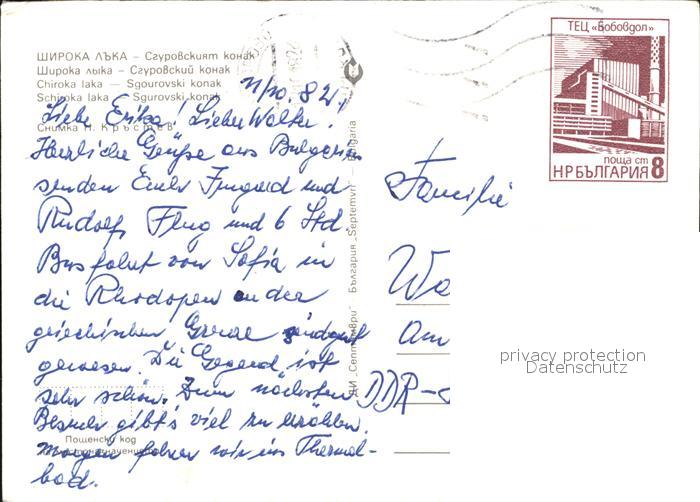 ШИРОКА ЛЪКА – Сгуровският конак
Широка лыка – Сгуровский конак
Chiroka laka – Sgourovski konak
Schiroka laka – Sgurovski konak
Снимка П. Кръстев
11/10. 82.
Liebe Erika! Lieber Walter!
Herzliche Grüße aus Bulgarien
senden Euch Irmgard und
Rudolf. Flug und 6 Std.
Busfahrt von Sofia in
die Rhodopen an der
griechischen Grenze sind gut
gewesen. Die Gegend ist
sehr schön. Zum nächsten
Besuch gibt's viel zu erzählen.
Morgen fahren wir ins Thermal-
bad.
Пощенски код
ДИ „Септември" България „Septemvri" Bulgaria
ТЕЦ „Бобовдол"
поща ст 8
НР БЪЛГАРИЯ
Familie
Wa
Am
DDR-
privacy protection
Datenschutz